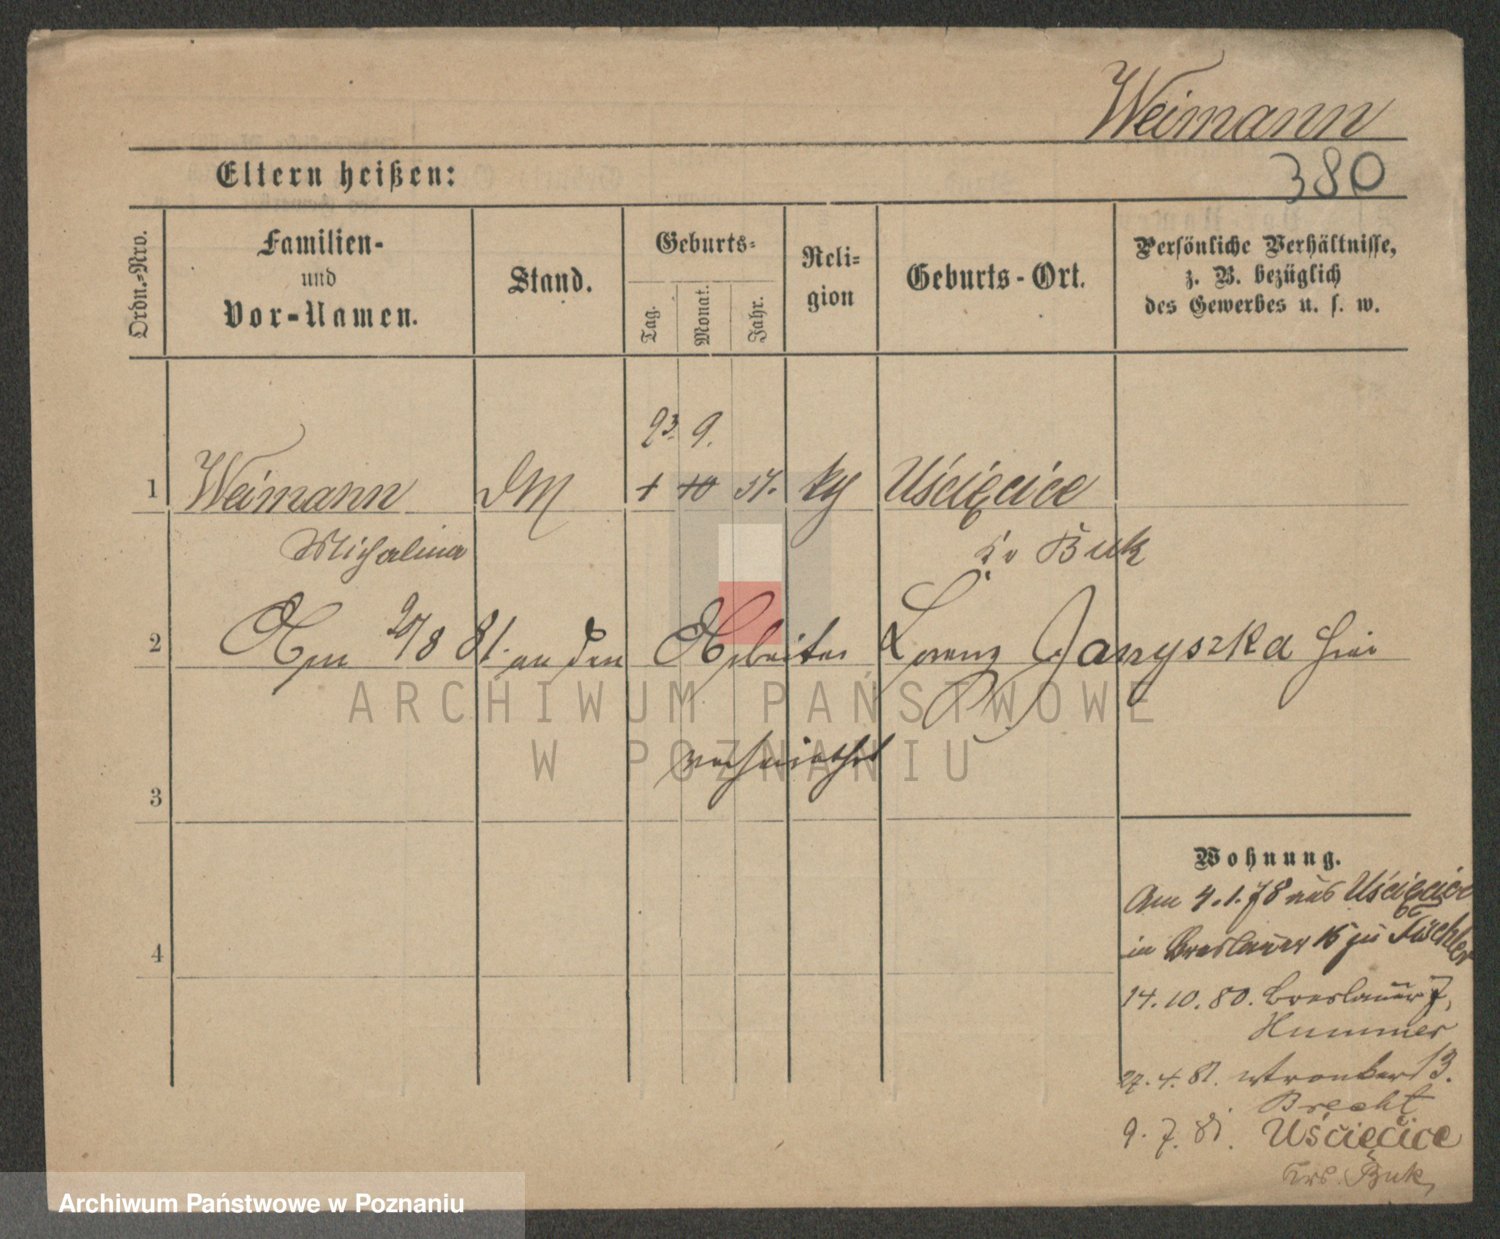 Weimann
380
Eltern heißen:
Ordn.-Nro.
Familien-
und
Vor-Namen.
Stand.
Geburts-
Tag.
Monat.
Jahr.
Reli-
gion
Geburts-Ort.
Persönliche Verhältnisse,
z. B. bezüglich
des Gewerbes u. s. w.
23. 9.
1 Weimann DM 1 10 57. kg Uścięcice
Michalina Kr Buk
2 Am 20/8 81. an den Arbeiter Lorenz Janyszka hier
ARCHIWUM PAŃSTWOWE
W POZNANIU
verheirathet
3
Wohnung.
Am 4.1.78 aus Uścięcice
in Breslauer 15 zu Tischler
4
14.10.80. Breslauer 7,
Hummer
27.4.81. Wronker 13.
Brecht
9.7.81. Uścięcice
Krs. Buk,
Archiwum Państwowe w Poznaniu